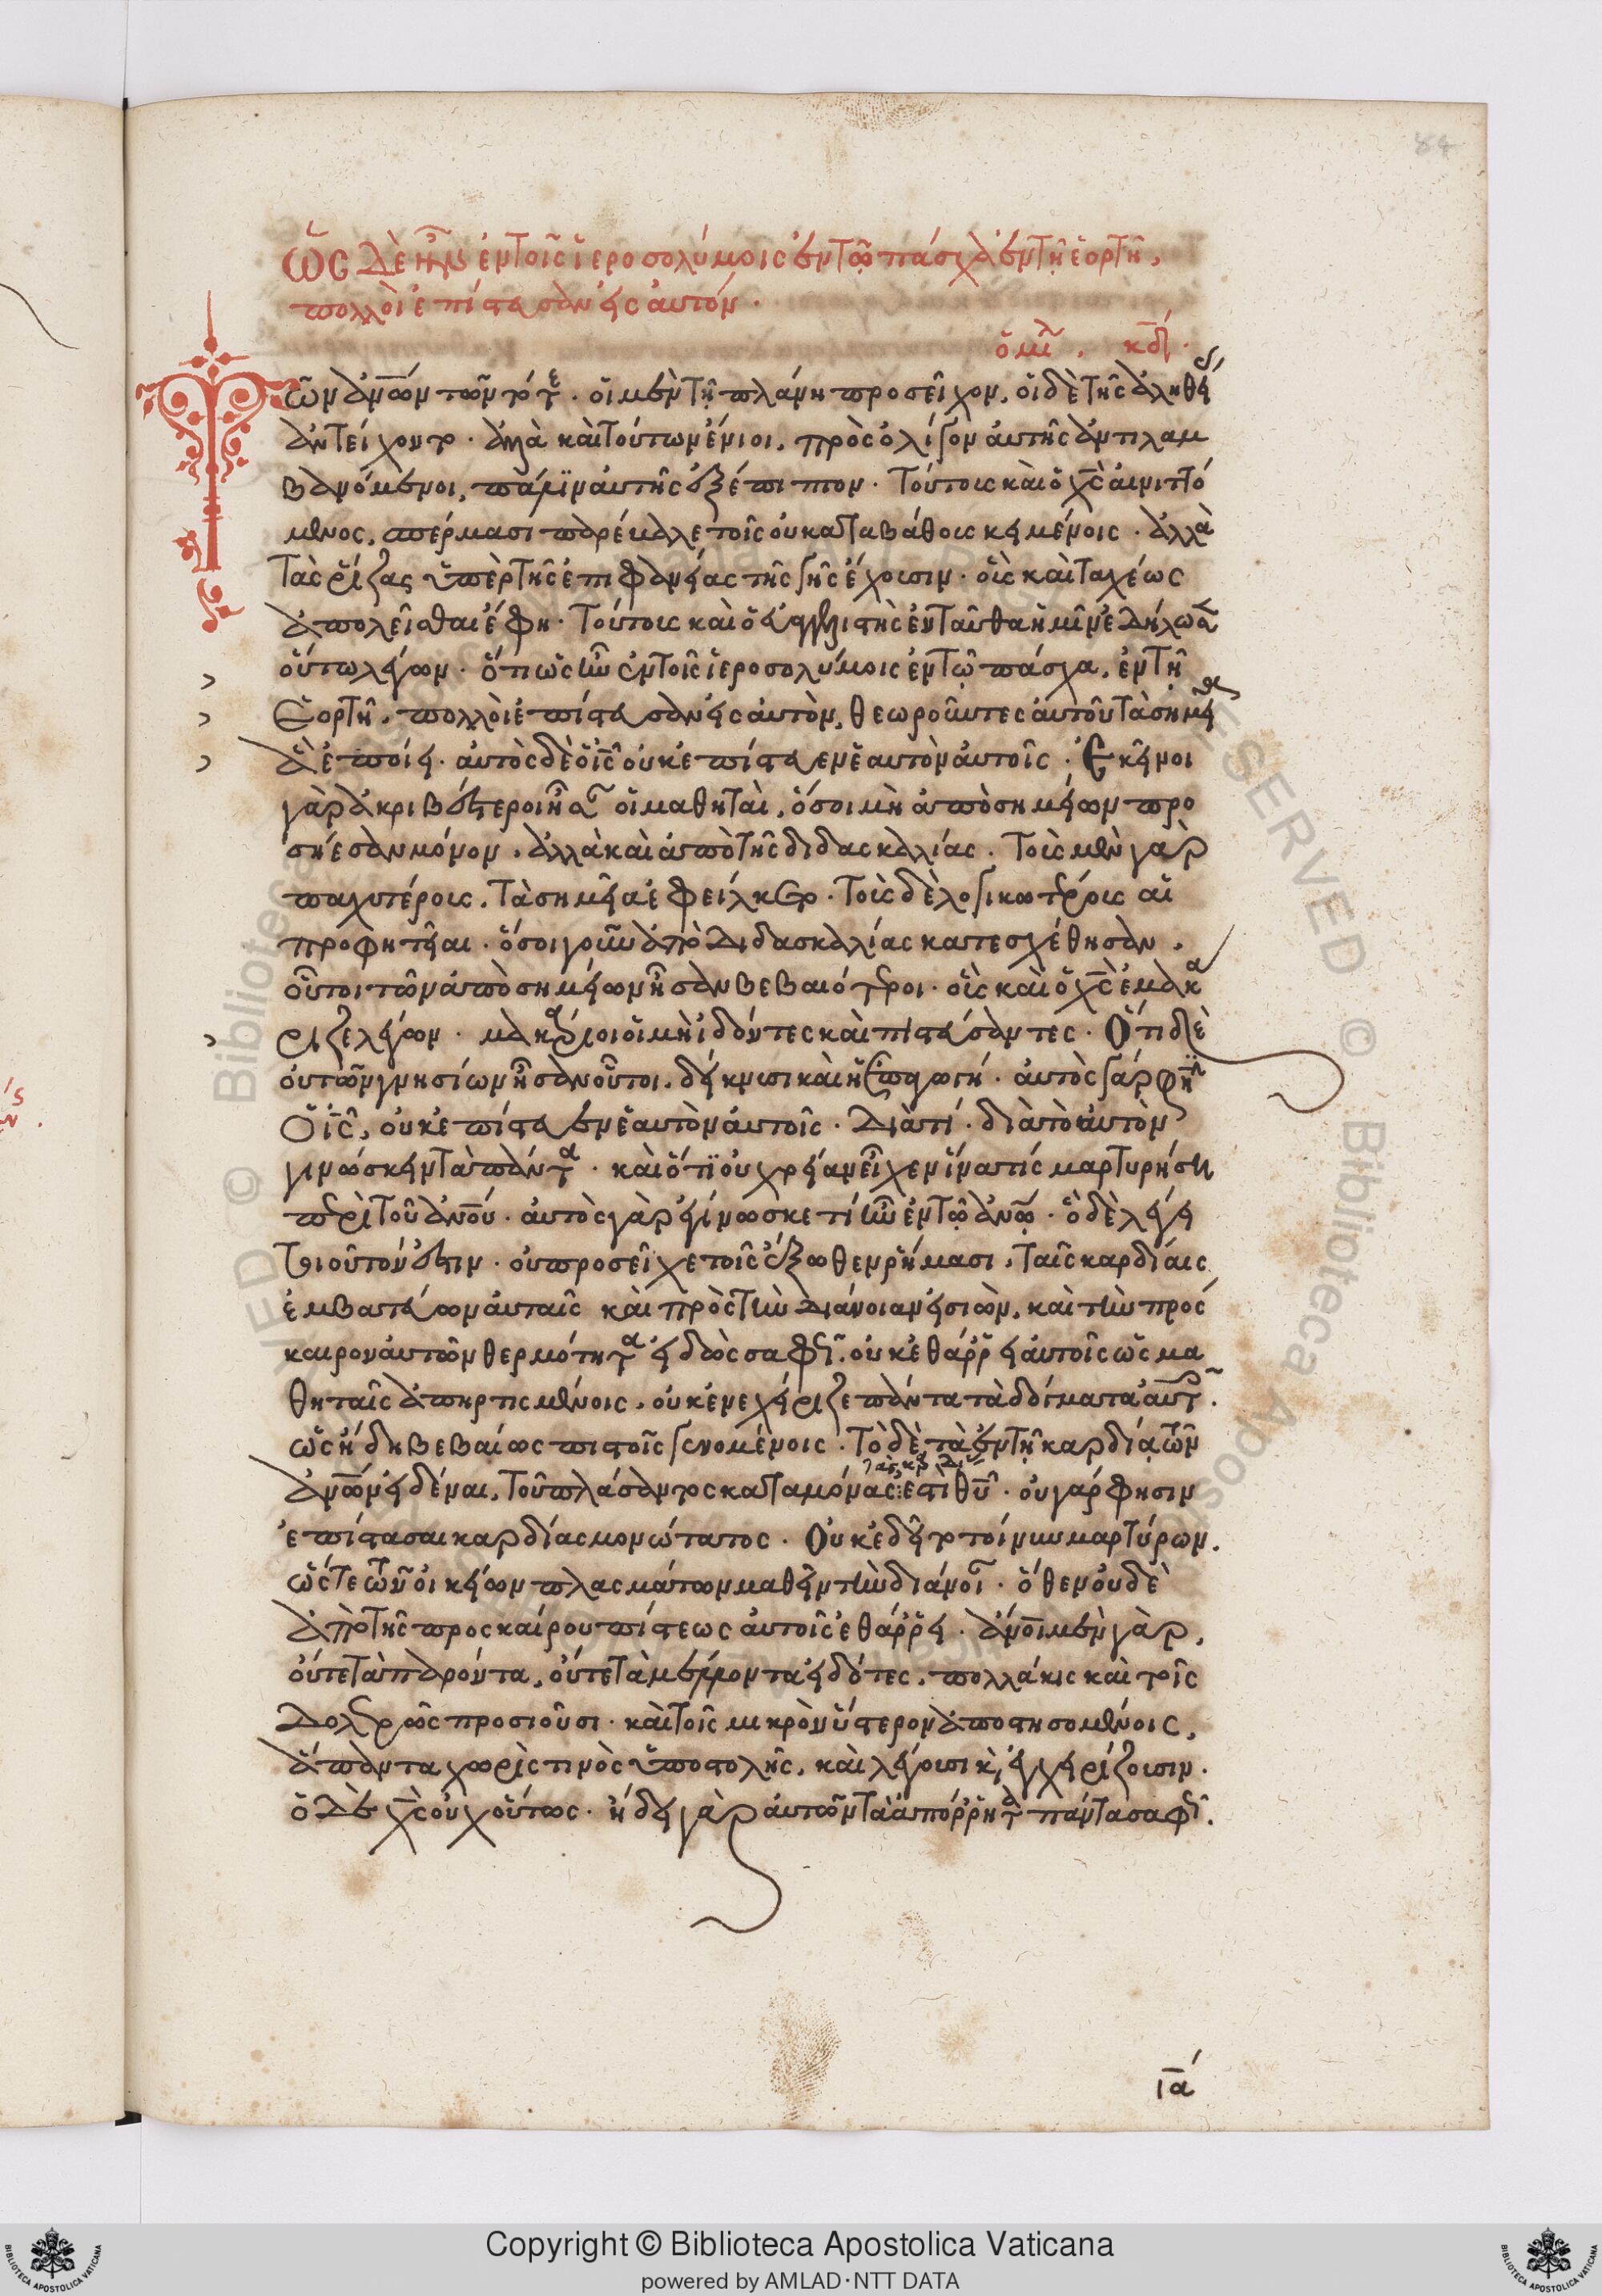 ὡς δὲ ἦν ἐν τοῖς ἱεροσολύμοις ἐν τῷ πάσχα ἐν τῇ ἑορτῇ,
πολλοὶ ἐπίστευσαν εἰς αὐτόν.
ὁμι. κδ.
Τῶν ἀνων τῶν τότε. οἱ μὲν τῇ πλάνῃ προσεῖχον, οἱ δὲ τῆς ἀληθεί
ἀντείχοντο. ἀλλὰ καὶ τούτων ἔνιοι, πρὸς ὀλίγον αὐτῆς ἀντιλαμ
βανόμενοι, πάλιν αὐτῆς ἐξέπιπτον. Τούτους καὶ ὁ χς αἰνιττό
μενος, σπέρμασι παρέβαλε τοῖς οὐ κατὰ βάθους κειμένοις. ἀλλὰ
τὰς ῥίζας ὑπὲρ τῆς ἐπιφανείας τῆς γῆς ἔχουσιν. οὓς καὶ ταχέως
ἀπολεῖσθαι ἔφη. Τούτους καὶ ὁ εὐαγγελιστὴς ἐνταῦθα ἡμῖν ἐδήλωσεν
οὕτω λέγων. ὅτι ὡς ἦν ἐν τοῖς ἱεροσολύμοις ἐν τῷ πάσχα, ἐν τῇ
ἑορτῇ, πολλοὶ ἐπίστευσαν εἰς αὐτὸν, θεωροῦντες αὐτοῦ τὰ σημεῖα
ἃ ἐποίει. αὐτὸς δὲ ὁ ις οὐκ ἐπίστευεν ἑαυτὸν αὐτοῖς. Ἐκεῖνοι
γὰρ ἀκριβέστεροι ἦσαν οἱ μαθηταὶ, ὅσοι μὴ ἀπὸ σημείων προ
σῄεσαν μόνον, ἀλλὰ καὶ ἀπὸ τῆς διδασκαλίας. Τοὺς μὲν γὰρ
παχυτέρους, τὰ σημεῖα ἐφείλκετο. Τοὺς δὲ λογικωτέρους αἱ
προφητεῖαι. ὅσοι γοῦν ἀπὸ διδασκαλίας κατεσχέθησαν,
οὗτοι τῶν ἀπὸ σημείων ἦσαν βεβαιότεροι. οὓς καὶ ὁ χς ἐμακά
ριζε λέγων. μακάριοι οἱ μὴ ἰδόντες καὶ πιστεύσαντες. Ὅτι δὲ
οὐ τῶν γνησίων ἦσαν οὗτοι, δείκνυσι καὶ ἡ ἐπαγωγή. αὐτὸς γάρ φησιν
ὁ ις, οὐκ ἐπίστευεν ἑαυτὸν αὐτοῖς. Διὰ τί. διὰ τὸ αὐτὸν
γινώσκειν τὰ πάντα. καὶ ὅτι οὐ χρείαν εἶχεν ἵνα τις μαρτυρήσῃ
περὶ τοῦ ἀνου. αὐτὸς γὰρ ἐγίνωσκε τί ἦν ἐν τῷ ἀνω. ὃ δὲ λέγει
τοιοῦτόν ἐστιν. οὐ προσεῖχε τοῖς ἔξωθεν ῥήμασι, ταῖς καρδίαις
ἐμβατεύων αὐταῖς καὶ πρὸς τὴν διάνοιαν εἰσιὼν, καὶ τὴν πρὸς
καιρὸν αὐτῶν θερμότητα εἰδὼς σαφῶς. οὐκ ἐθάρρει αὐτοῖς ὡς μα
θηταῖς ἀπηρτισμένοις, οὐκ ἐνεχείριζε πάντα τὰ δόγματα αὐτοῖς.
ὡς ἤδη βεβαίως πιστοῖς γενομένοις. Τὸ δὲ τὰ ἐν τῇ καρδίᾳ τῶν
ἀνων εἰδέναι, τοῦ πλάσαντος κατὰ μόνας ἐστὶ θυ. οὐ γάρ φησιν
ἐπίστασαι καρδίας μονώτατος. Οὐκ ἐδεῖτο τοίνυν μαρτύρων,
ὥστε τῶν οἰκείων πλασμάτων μαθεῖν τὴν διάνοιαν. ὅθεν οὐδὲ
ἀπὸ τῆς προσκαίρου πίστεως αὐτοῖς ἐθάρρει. ἄνοι μὲν γὰρ,
οὔτε τὰ παρόντα, οὔτε τὰ μέλλοντα εἰδότες, πολλάκις καὶ τοῖς
δολερῶς προσιοῦσι. καὶ τοῖς μικρὸν ὕστερον ἀποστησομένοις,
ἅπαντα χωρίς τινος ὑποστολῆς, καὶ λέγουσι κ, ἐγχειρίζουσιν.
ὁ δὲ χς οὐχ οὕτως. ᾔδει γὰρ αὐτῶν τὰ ἀπόρρητα πάντα σαφῶς.
ια
Copyright © Biblioteca Apostolica Vaticana
powered by AMLAD·NTT DATA